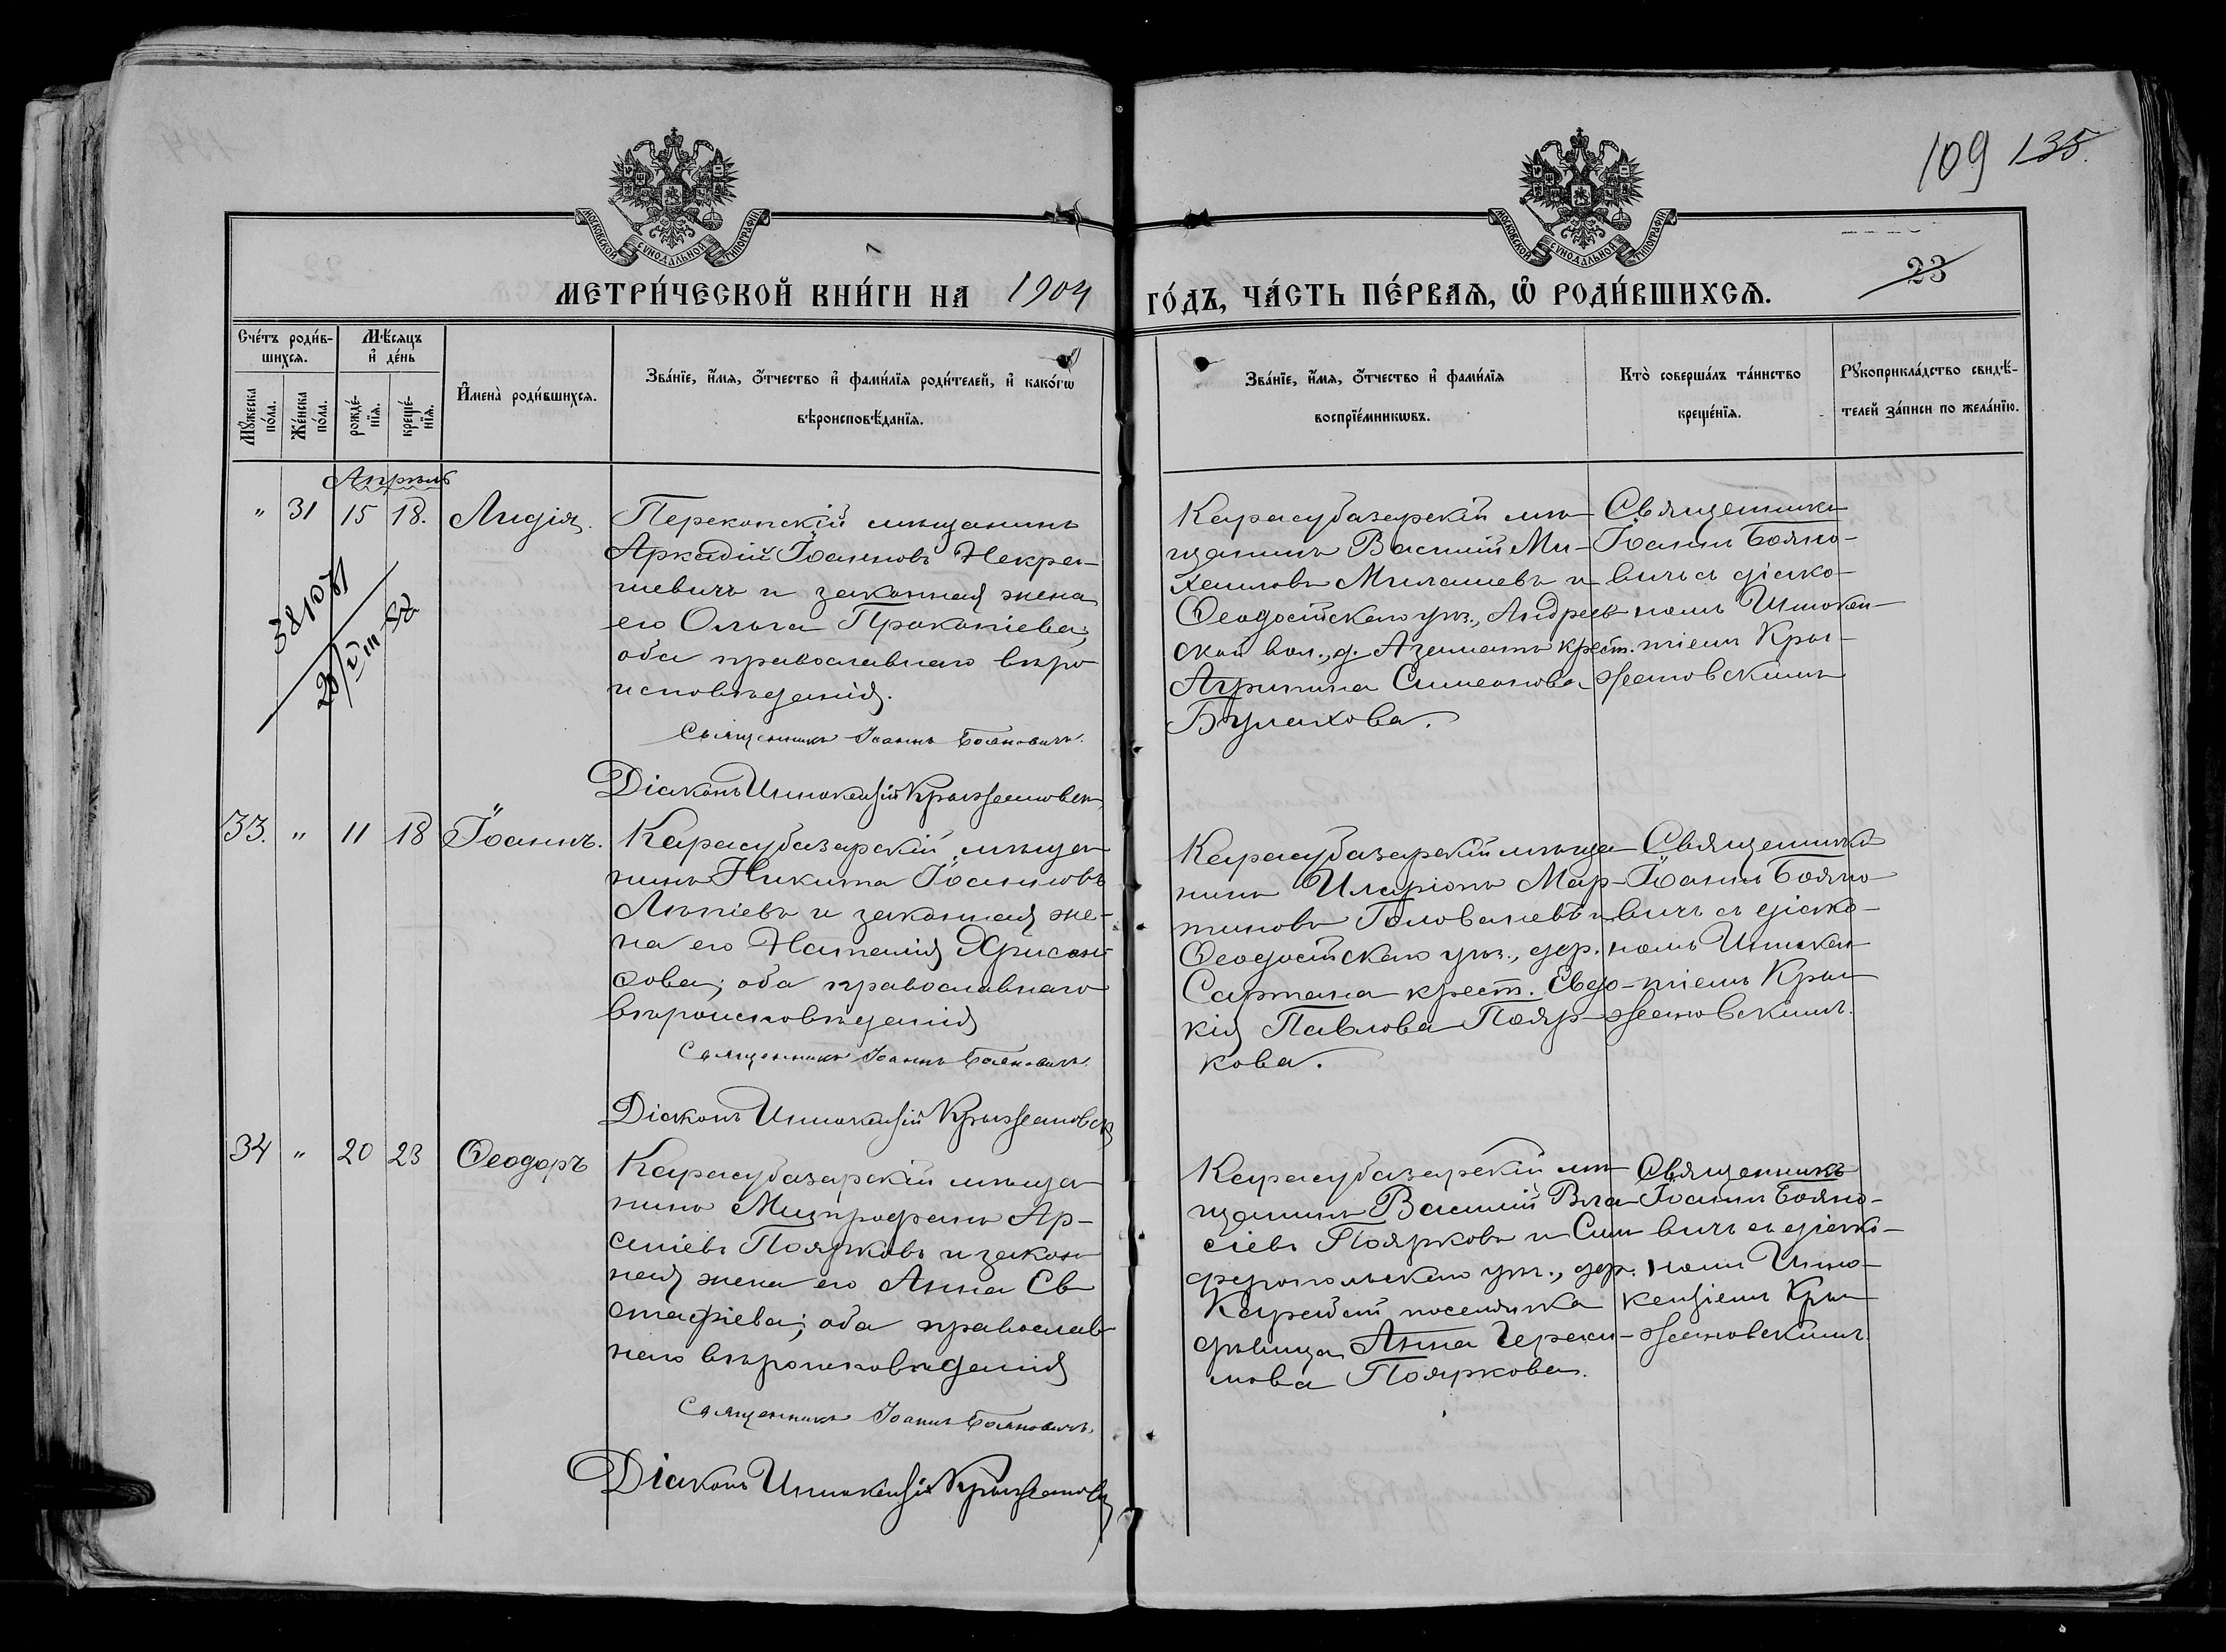 109 135.
МОСКОВСКОЙ СѴНОДАЛЬНОЙ ТИПОГРАФІИ
МОСКОВСКОЙ СѴНОДАЛЬНОЙ ТИПОГРАФІИ
23
МЕТРИ́ЧЕСКОЙ КНИ́ГИ НА 1904 ГО́ДЪ, ЧА́СТЬ ПЕ́РВАѦ, Ѡ҆ РОДИ́ВШИХСѦ.
Сче́тъ роди́в-
шихсѧ.
Мꙋ́жеска
по́ла.
Же́нска
по́ла.
Мѣ́сѧцъ
и҆ де́нь
рожде́-
нїѧ.
креще́-
нїѧ.
И҆мена̀ роди́вшихсѧ.
Зва́нїе, и҆́мѧ, ѻ҆́тчество и҆ фами́лїѧ роди́телей, и҆ како́гѡ
вѣроисповѣ́данїѧ.
Зва́нїе, и҆́мѧ, ѻ҆́тчество и҆ фами́лїѧ
воспрїе́мникѡвъ.
Кто̀ соверша́лъ та́инство
креще́нїѧ.
Рꙋкоприкла́дство свидѣ́-
телей за́писи по жела́нїю.
Апрѣль
" 31 15 18. Лидія.
Перекопскій мѣщанинъ
Аркадій Іоанновъ Некра-
шевичъ и законная жена
его Ольга Прокопіева;
оба православнаго вѣро
исповѣданія.
Священникъ Іоаннъ Бояновичъ.
Діаконъ Иннокентій Крыжановск
Карасубазарскій мѣ-
щанинъ Василій Ми-
хаиловъ Милашевъ и
Ѳеодосійскаго уѣз., Андреев
ской вол., д. Азаматъ крест.
Агрипина Симеонова
Булахова.
Священникъ
Іоаннъ Бояно-
вичъ съ діако-
номъ Иннокен-
тіемъ Кры-
жановскимъ
33. " 11 18 Іоаннъ.
Карасубазарскій мѣща
нинъ Никита Іоанновъ
Лѣпіевъ и законная же-
на его Наталія Хрисан-
фова; оба православнаго
вѣроисповѣданія
Священникъ Іоаннъ Бояновичъ.
Діаконъ Иннокентій Крыжановск
Карасубазарскій мѣща
нинъ Иларіонъ Мар-
тиновъ Головачевъ и
Ѳеодосійскаго уѣз., дер.
Сартана крест. Евдо-
кія Павлова Пояр-
кова.
Священникъ
Іоаннъ Бояно
вичъ съ діако-
номъ Иннокен
тіемъ Кры
жановскимъ.
34 " 20 23 Ѳеодоръ
Карасубазарскій мѣща
нинъ Митрофанъ Ар-
сеніевъ Поярковъ и закон
ная жена его Анна Ев
стафіева; оба православ
наго вѣроисповѣданія
Священникъ Іоаннъ Бояновичъ.
Діаконъ Иннокентій Крыжановск
Карасубазарскій мѣ
щанинъ Василій Вла
сіевъ Поярковъ и Сим
феропольскаго уѣз., дер.
поселянка
дѣвица Анна Гераси-
мова Пояркова.
Священникъ
Іоаннъ Бояно-
вичъ съ діако-
номъ Инно-
кентіемъ Кры
жановскимъ.